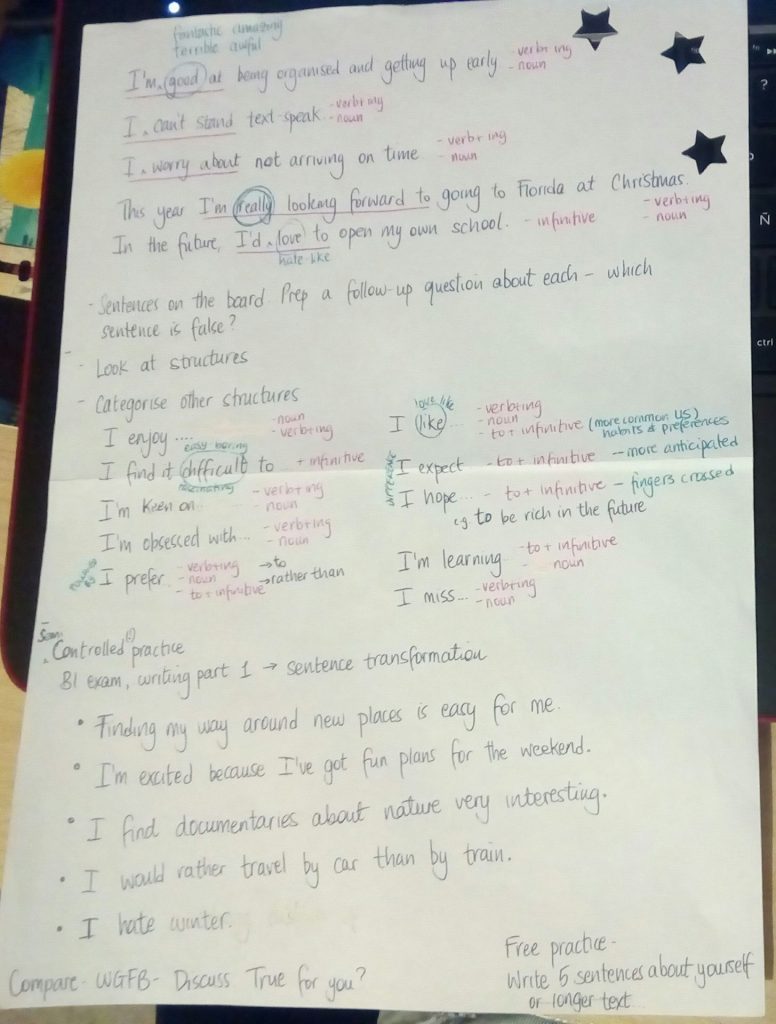 fantastic amazing
terrible awful
I'm good at being organised and getting up early - verb+ing
- noun
I can't stand text speak - verb+ing
- noun
I worry about not arriving on time - verb+ing
- noun
This year I'm really looking forward to going to Florida at Christmas.
- verb+ing
- noun
In the future, I'd love to open my own school. - infinitive
hate like
- Sentences on the board. Prep a follow-up question about each - which
sentence is false?
- Look at structures
- Categorise other structures
I enjoy .... - noun
- verb+ing
easy boring
I find it difficult to + infinitive
fascinating
I'm keen on... - verb+ing
- noun
I'm obsessed with... - verb+ing
- noun
I prefer - verb+ing → to
- noun → rather than
- to + infinitive
love like
I like... - verb+ing
- noun
- to + infinitive (more common US)
habits & preferences
I expect - to + infinitive - more anticipated
I hope... - to + infinitive - fingers crossed
e.g. to be rich in the future
I'm learning - to + infinitive
- noun
I miss... - verb+ing
- noun
Controlled practice
B1 exam, writing part 1 → sentence transformation
• Finding my way around new places is easy for me.
• I'm excited because I've got fun plans for the weekend.
• I find documentaries about nature very interesting.
• I would rather travel by car than by train.
• I hate winter.
Compare - WGFB - Discuss True for you?
Free practice -
Write 5 sentences about yourself
or longer text...
?
Ñ
ctrl